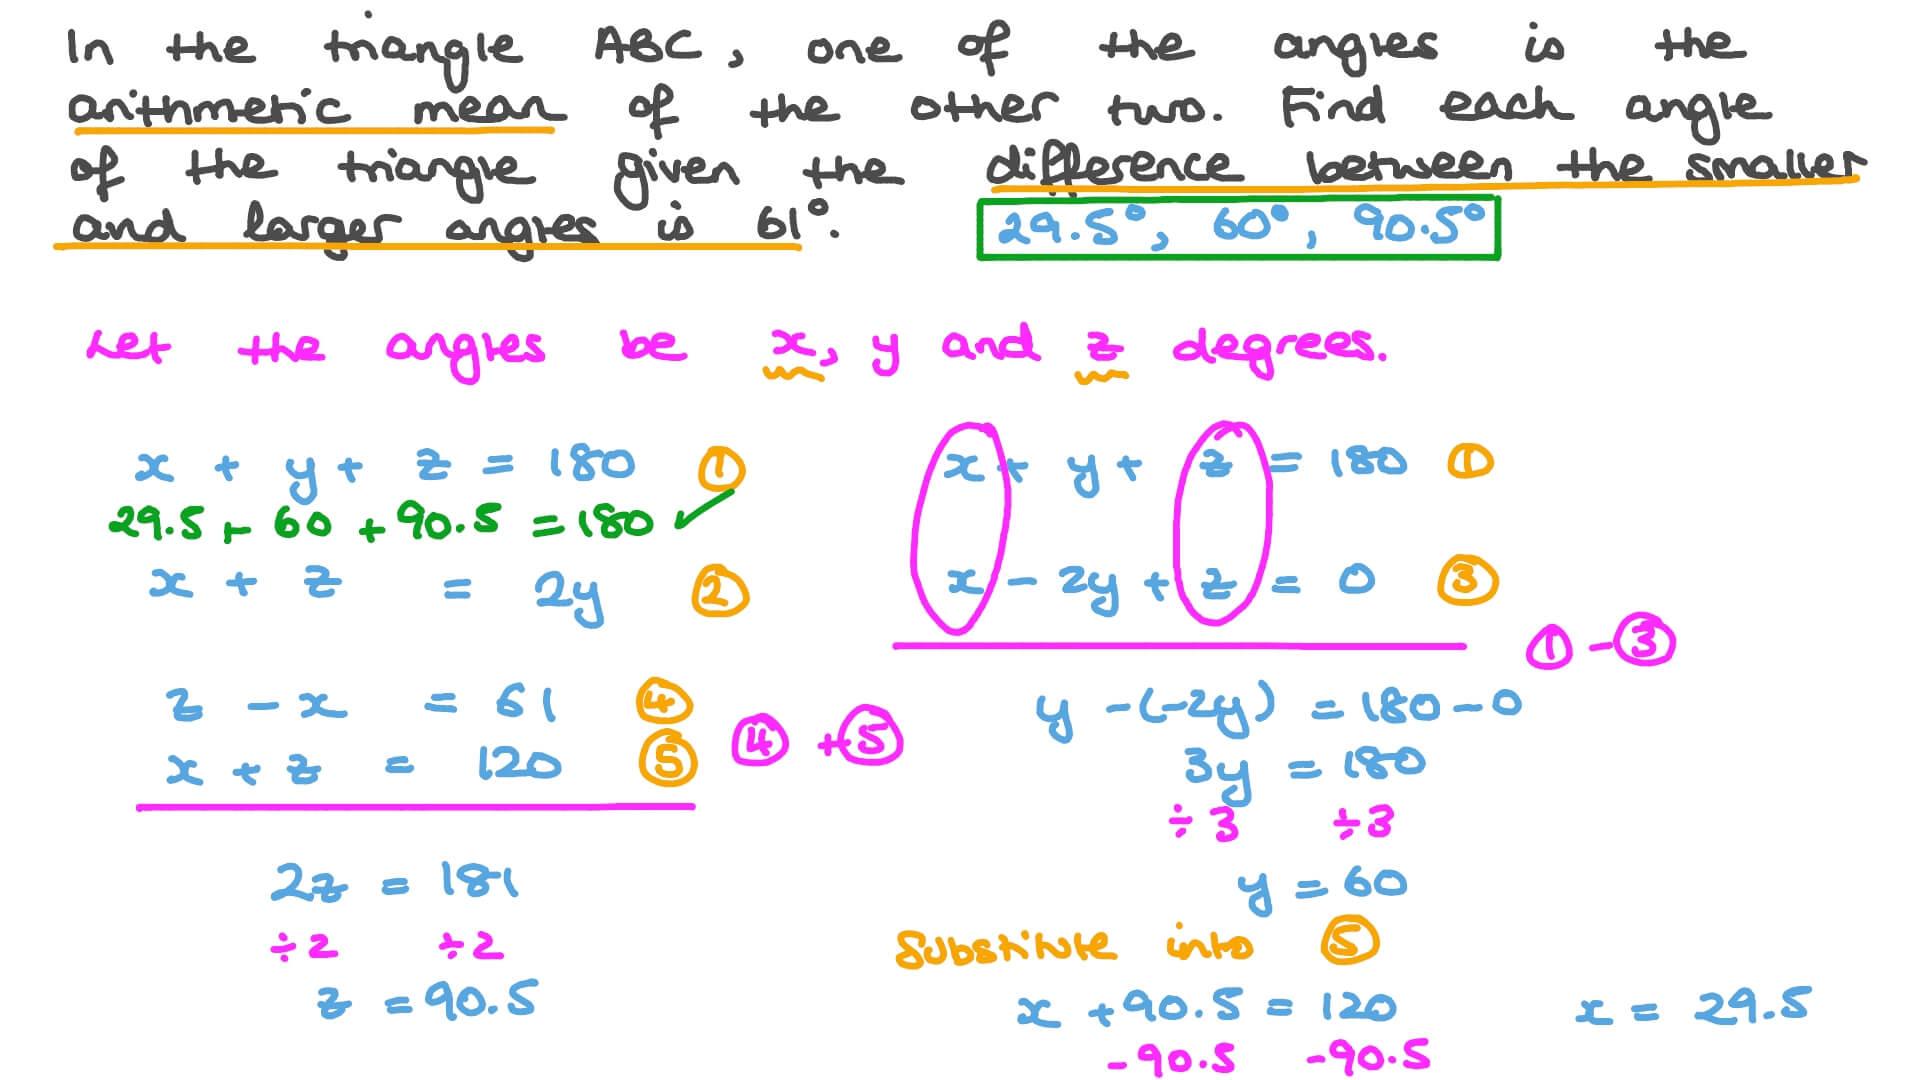 In the triangle ABC, one of the angles is the
arithmetic mean of the other two. Find each angle
of the triangle given the difference between the smaller
and larger angles is 61°.
29.5°, 60°, 90.5°
Let the angles be x, y and z degrees.
x + y + z = 180 ①
29.5 + 60 + 90.5 = 180 ✓
x + z = 2y ②
z - x = 61 ④
x + z = 120 ⑤
④ + ⑤
2z = 181
÷2 ÷2
z = 90.5
x + y + z = 180 ①
x - 2y + z = 0 ③
① - ③
y - (-2y) = 180 - 0
3y = 180
÷3 ÷3
y = 60
Substitute into ⑤
x + 90.5 = 120
-90.5 -90.5
x = 29.5